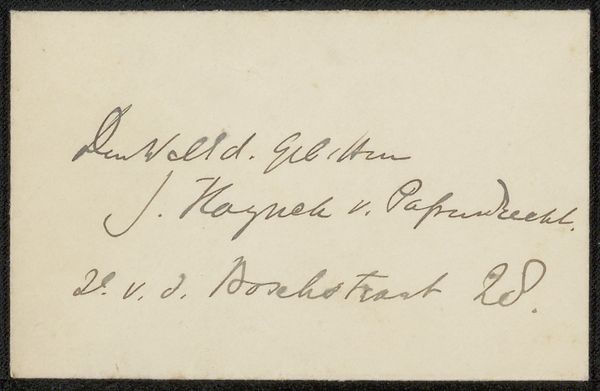 Den WelEd. Geb. Heer
J. Hoynck v. Papendrecht.
2e. v. d. Boschstraat 28.